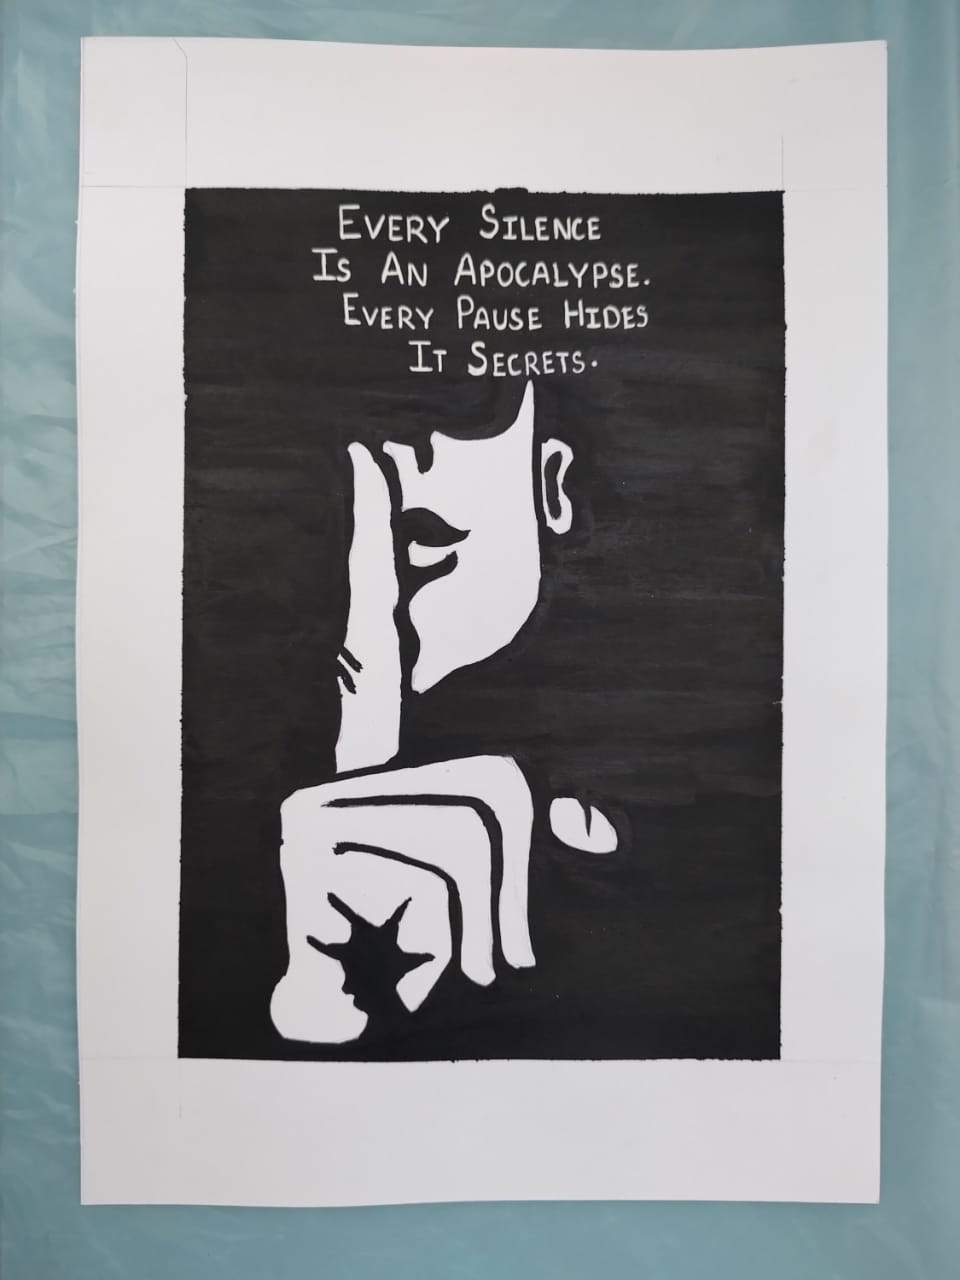 Every Silence
Is An Apocalypse.
Every Pause Hides
It Secrets.